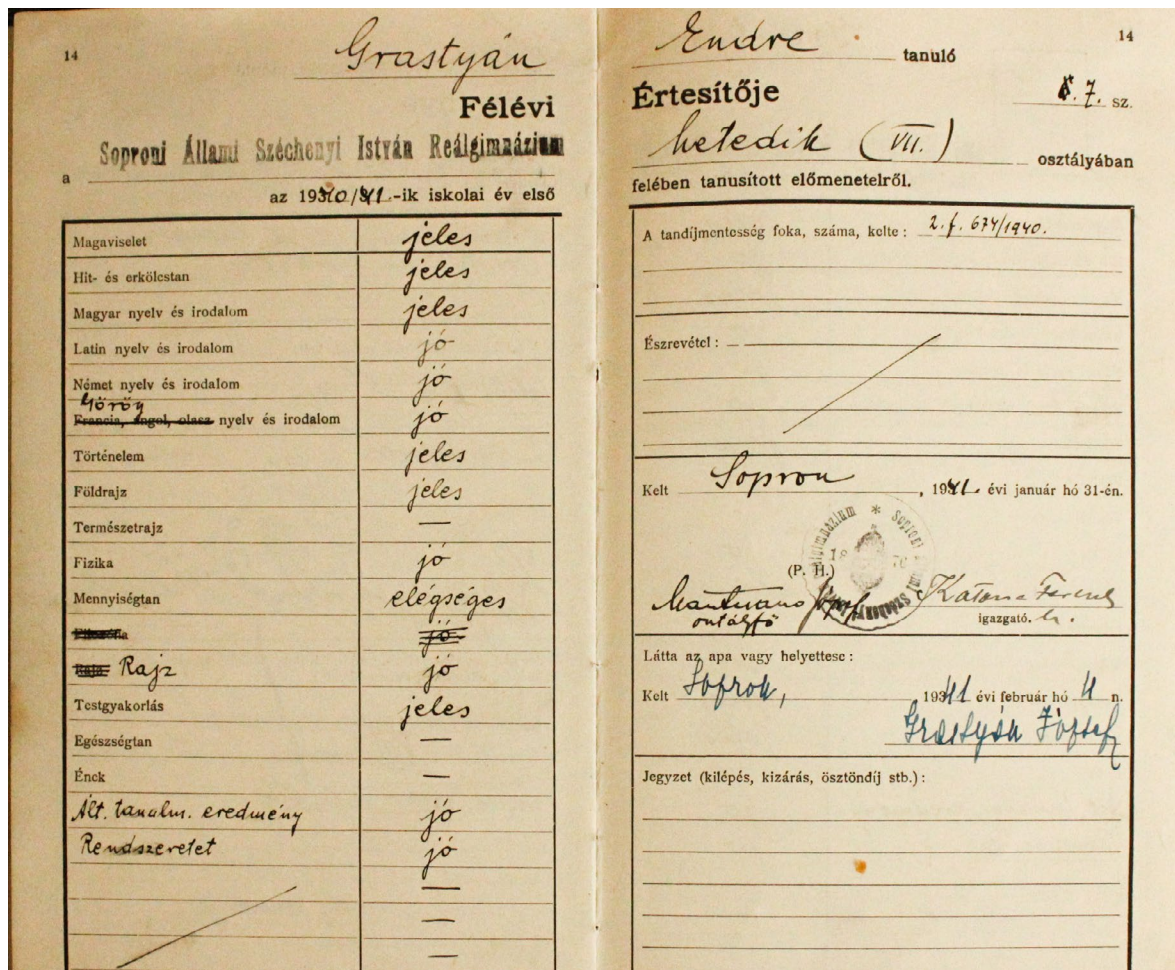 14
Grastyán
Félévi
Soproni Állami Széchenyi István Reálgimnázium
a
az 1940/41.-ik iskolai év első
Magaviselet jeles
Hit- és erkölcstan jeles
Magyar nyelv és irodalom jeles
Latin nyelv és irodalom jó
Német nyelv és irodalom jó
Görög
Francia, angol, olasz nyelv és irodalom jó
Történelem jeles
Földrajz jeles
Természetrajz —
Fizika jó
Mennyiségtan elégséges
jó
Rajz jó
Testgyakorlás jeles
Egészségtan —
Ének —
Ált. tanulm. eredmény jó
Rendszeretet jó
—
—
—
14
Endre tanuló
Értesítője 7. sz.
hetedik (VII.) osztályában
felében tanusított előmenetelről.
A tandíjmentesség foka, száma, kelte: 2. f. 674/1940.
Észrevétel:
Kelt Sopron, 1941. évi január hó 31-én.
(P. H.)
József Katona Ferenc
igazgató. h.
Látta az apa vagy helyettese:
Kelt Sopron, 1941 évi február hó 4 n.
Grastyán József
Jegyzet (kilépés, kizárás, ösztöndíj stb.):